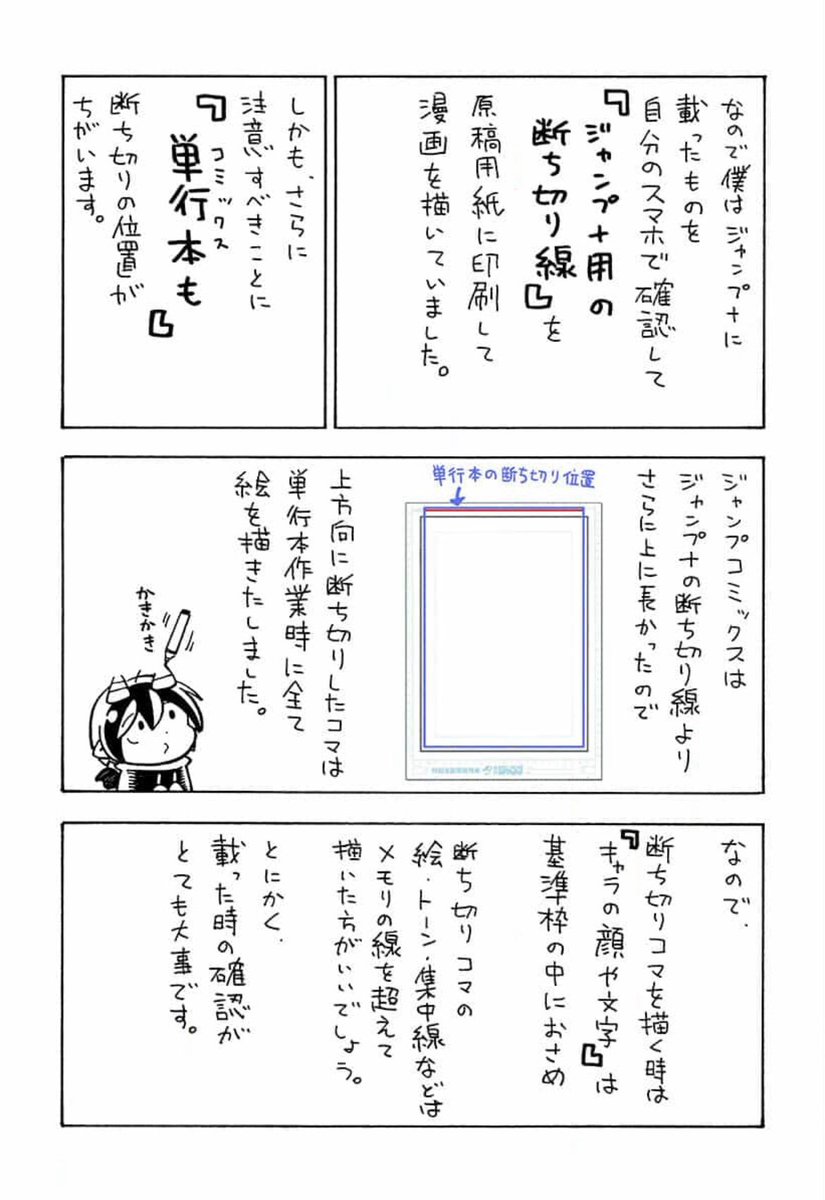 なので僕はジャンプ+に
載ったものを
自分のスマホで確認して
『ジャンプ+用の
断ち切り線』を
原稿用紙に印刷して
漫画を描いていました。
しかも、さらに
注意すべきことに
『単行本も』
コミックス
断ち切りの位置が
ちがいます。
ジャンプコミックスは
ジャンプ+の断ち切り線より
さらに上に長かったので
単行本の断ち切り位置
上方向に断ち切りしたコマは
単行本作業時に全て
絵を描きたしました。
かきかき
なので、
断ち切りコマを描く時は
『キャラの顔や文字』は
基準枠の中におさめ
断ち切りコマの
絵・トーン・集中線などは
メモリの線を超えて
描いた方がいいでしょう。
とにかく、
載った時の確認が
とても大事です。